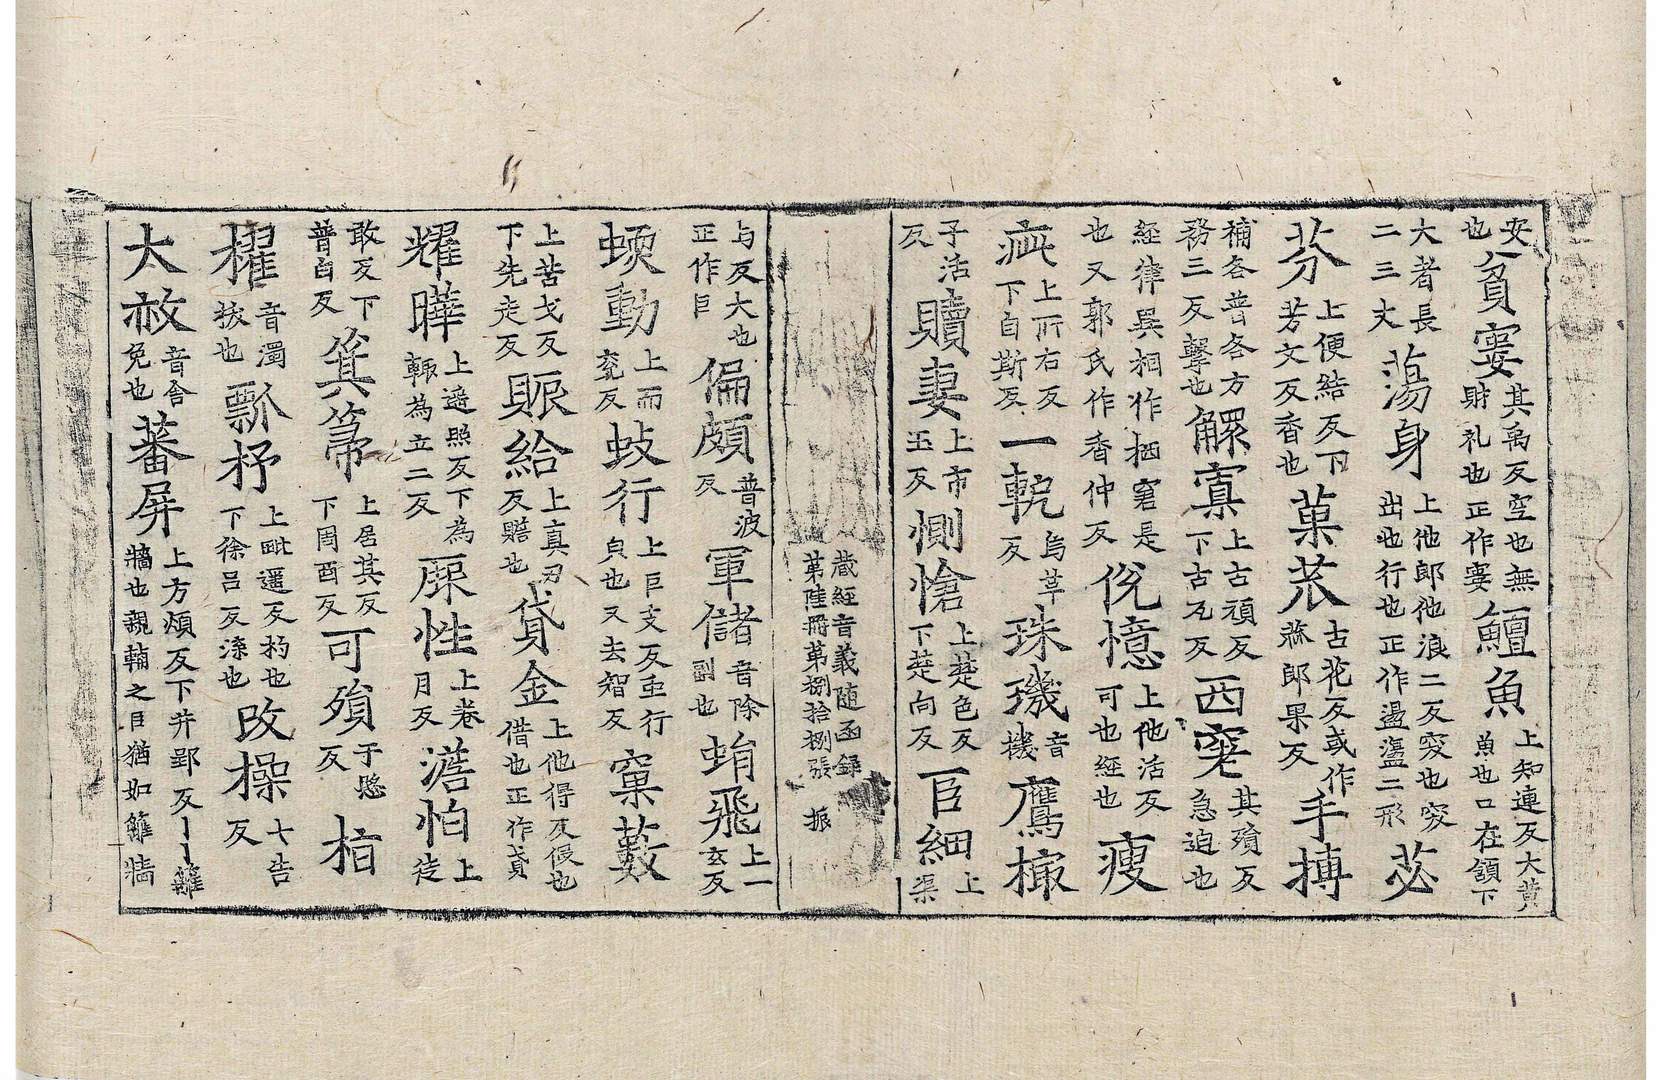 安也貧寠其禹反空也無財礼也正作寠鱣魚上知連反大黃魚也口在頷下
大者長二三丈蕩身上他郎他浪二反突也突出也行也正作盪蘯二形苾
芬上便結反下芳文反香也菓蓏古花反或作蓏郎果反手搏
補各普各方務三反擊也鰥寡上古頑反下古瓦反西窓其殞反急迫也
經律異相作栖窘是也又郭氏作香仲反侻憶上他活反可也經也瘦
疵上所右反下自斯反一軶烏革反珠璣音機鷹橠
子活反贖妻上市玉反惻愴上楚色反下楚向反叵細上渠
藏經音義隨函録第陸冊第捌拾捌張 振
与反大也正作巨偏頗普波反軍儲音除副也蜎飛上一玄反
蝡動上而兖反蚑行上巨支反虫行皃也又去智反窠藪
上苦戈反下先走反賑給上真刃反贍也貸金上他得反假也借也正作貣
耀曄上遥照反下為輒為立二反愿性上卷月反澹怕上徒
敢反下普白反箕箒上居其反下周酉反可殞于愍反栢
櫂音濁拔也瓢杼上毗遥反杓也下徐吕反漆也改操七告反
大赦音舎免也蕃屏上方煩反下并郢反丨丨籬牆也親輔之目猶如籬牆